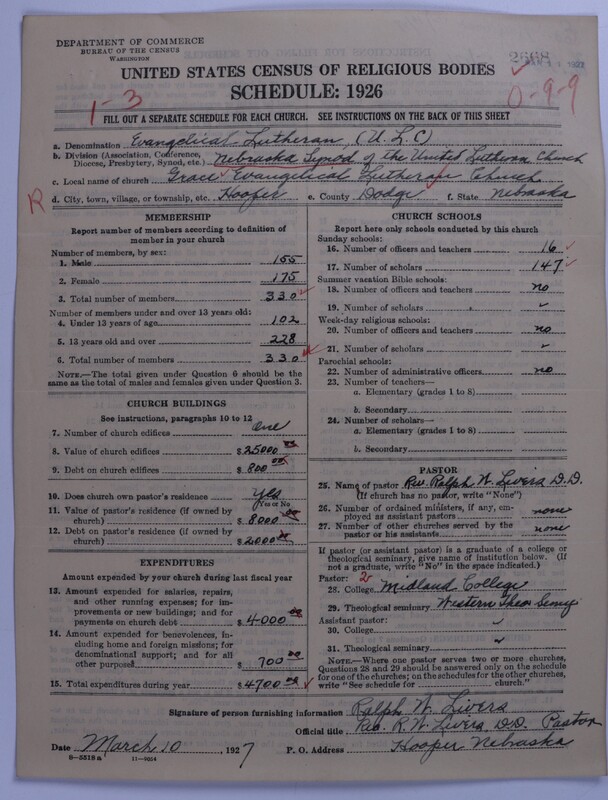 DEPARTMENT OF COMMERCE
BUREAU OF THE CENSUS
WASHINGTON
UNITED STATES CENSUS OF RELIGIOUS BODIES
SCHEDULE: 1926
1-3
0-9-9
FILL OUT A SEPARATE SCHEDULE FOR EACH CHURCH. SEE INSTRUCTIONS ON THE BACK OF THIS SHEET
a. Denomination Evangelical Lutheran, (U.L.C)
b. Division (Association, Conference, Diocese, Presbytery, Synod, etc.) Nebraska Synod of the United Lutheran Church
c. Local name of church Grace Evangelical Lutheran Church
R
d. City, town, village, or township, etc. Hooper e. County Dodge f. State Nebraska
MEMBERSHIP
Report number of members according to definition of
member in your church
Number of members, by sex:
1. Male 155
2. Female 175
3. Total number of members 330
Number of members under and over 13 years old:
4. Under 13 years of age 102
5. 13 years old and over 228
6. Total number of members 330
NOTE.—The total given under Question 6 should be
the same as the total of males and females given under Question 3.
CHURCH BUILDINGS
See instructions, paragraphs 10 to 12
7. Number of church edifices one
8. Value of church edifices $25000 00
9. Debt on church edifices $800 00
10. Does church own pastor's residence Yes
Yes or No
11. Value of pastor's residence (if owned by
church) $8000 00
12. Debt on pastor's residence (if owned by
church) $2000 00
EXPENDITURES
Amount expended by your church during last fiscal year
13. Amount expended for salaries, repairs,
and other running expenses; for im-
provements or new buildings; and for
payments on church debt $4000 00
14. Amount expended for benevolences, in-
cluding home and foreign missions; for
denominational support; and for all
other purposes 700 00
15. Total expenditures during year $4700 00
CHURCH SCHOOLS
Report here only schools conducted by this church
Sunday schools:
16. Number of officers and teachers 16
17. Number of scholars 147
Summer vacation Bible schools:
18. Number of officers and teachers no
19. Number of scholars
Week-day religious schools:
20. Number of officers and teachers no
21. Number of scholars
Parochial schools:
22. Number of administrative officers no
23. Number of teachers—
a. Elementary (grades 1 to 8)
b. Secondary
24. Number of scholars—
a. Elementary (grades 1 to 8)
b. Secondary
PASTOR
25. Name of pastor Rev. Ralph W. Livers D.D.
(If church has no pastor, write "None")
26. Number of ordained ministers, if any, em-
ployed as assistant pastors none
27. Number of other churches served by the
pastor or his assistants none
If pastor (or assistant pastor) is a graduate of a college or
theological seminary, give name of institution below. (If
not a graduate, write "No" in the space indicated.)
Pastor: 2
28. College Midland College
29. Theological seminary Western Theo Seminy
Assistant pastor:
30. College
31. Theological seminary
NOTE.—Where one pastor serves two or more churches,
Questions 28 and 29 should be answered only on the schedule
for one of the churches; on the schedules for the other churches,
write "See schedule for church."
Signature of person furnishing information Ralph W. Livers
Official title Rev. R. W. Livers D.D. Pastor
Date March 10, 1927 P. O. Address Hooper Nebraska
8-5518a 11-9014